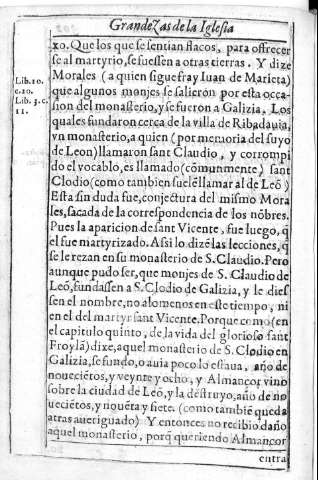 Grandezas de la Iglesia
xo. Que los que se sentian flacos, para ofrrecer
se al martyrio, se fuessen a otras tierras. Y dize
Lib. 10.
c. 10.
Lib. 3. c.
11.
Morales (a quien sigue fray Iuan de Marieta)
que algunos monjes se salieron por esta occa-
sion del monasterio, y se fueron a Galizia. Los
quales fundaron cerca de la villa de Ribadauia,
vn monasterio, a quien (por memoria del suyo
de Leon) llamaron sant Claudio, y corrompi
do el vocablo, es llamado (cõmunmente) sant
Clodio (como tambien suelẽ llamar al de Leõ)
Esta sin duda fue, conjectura del mismo Mora
les, sacada de la correspondencia de los nõbres.
Pues la aparicion de sant Vicente, fue luego, q̃
el fue martyrizado. Assi lo dizẽ las lecciones, q̃
se le rezan en su monasterio de S. Claudio. Pero
aunque pudo ser, que monjes de S. Claudio de
Leõ, fundassen a S. Clodio de Galizia, y le dies
sen el nombre, no alomenos en este tiempo, ni
en el del martyr sant Vicente. Porque como (en
el capitulo quinto, de la vida del glorioso sant
Froylã) dixe, aquel monasterio de S. Clodio en
Galizia, se fundo, o auia poco lo estaua, año de
noueciẽtos, y veynte y ocho, y Almançor vino
sobre la ciudad de Leõ, y la destruyo, año de no
ueciẽtos, y nouẽta y siete. (como tambiẽ queda
atras aueriguado) Y entonces no recibio daño
aquel monasterio, porq̃ queriendo Almançor
entra